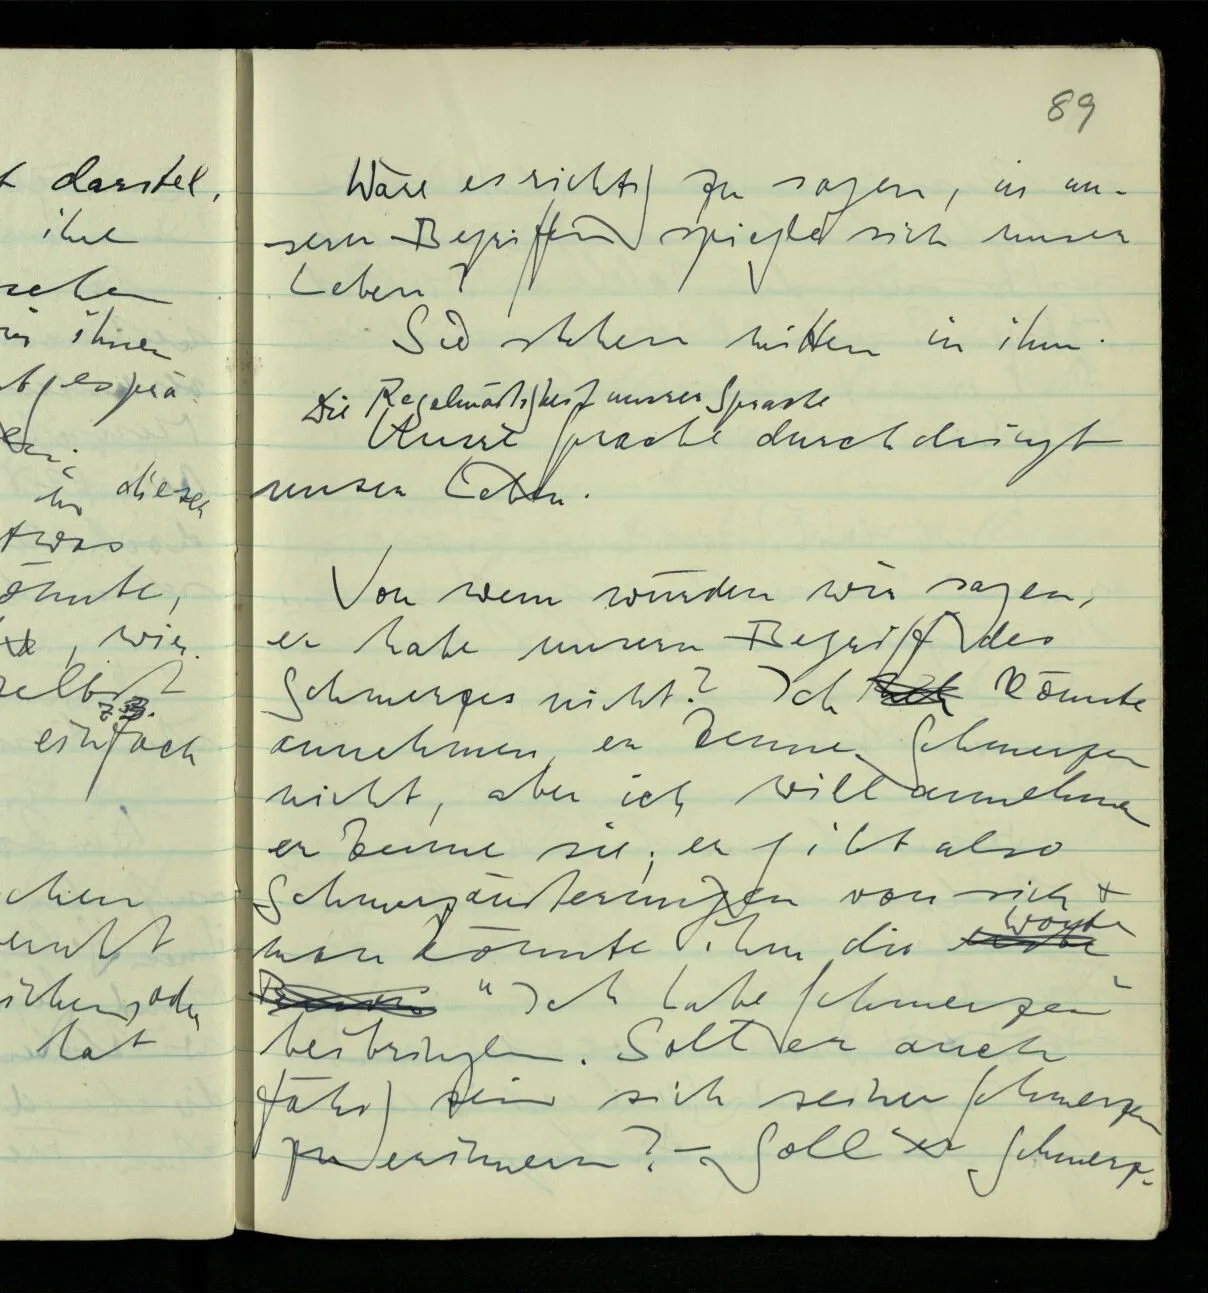 t darstel,
ihre
ihnen
in diesen
etwas
könnte,
, wie
selbst
z.B.
einfach
chen
oder
hat
89
Wäre es richtig zu sagen, in un-
sern Begriffen spiegle sich unser
Leben?
Sie stehen mitten in ihm.
Die Regelmäßigkeit unsrer Sprache
Unsre Sprache durchdringt
unser Leben.
Von wem würden wir sagen,
er habe unsern Begriff des
Schmerzes nicht? Ich könnte
annehmen, er kenne Schmerzen
nicht, aber ich will annehmen
er kenne sie; er gibt also
Schmerzäußerungen von sich +
man könnte ihm die Worte
"Ich habe Schmerzen"
beibringen. Soll er auch
fähig sein sich seiner Schmerzen
zu erinnern? – Soll er Schmerz-